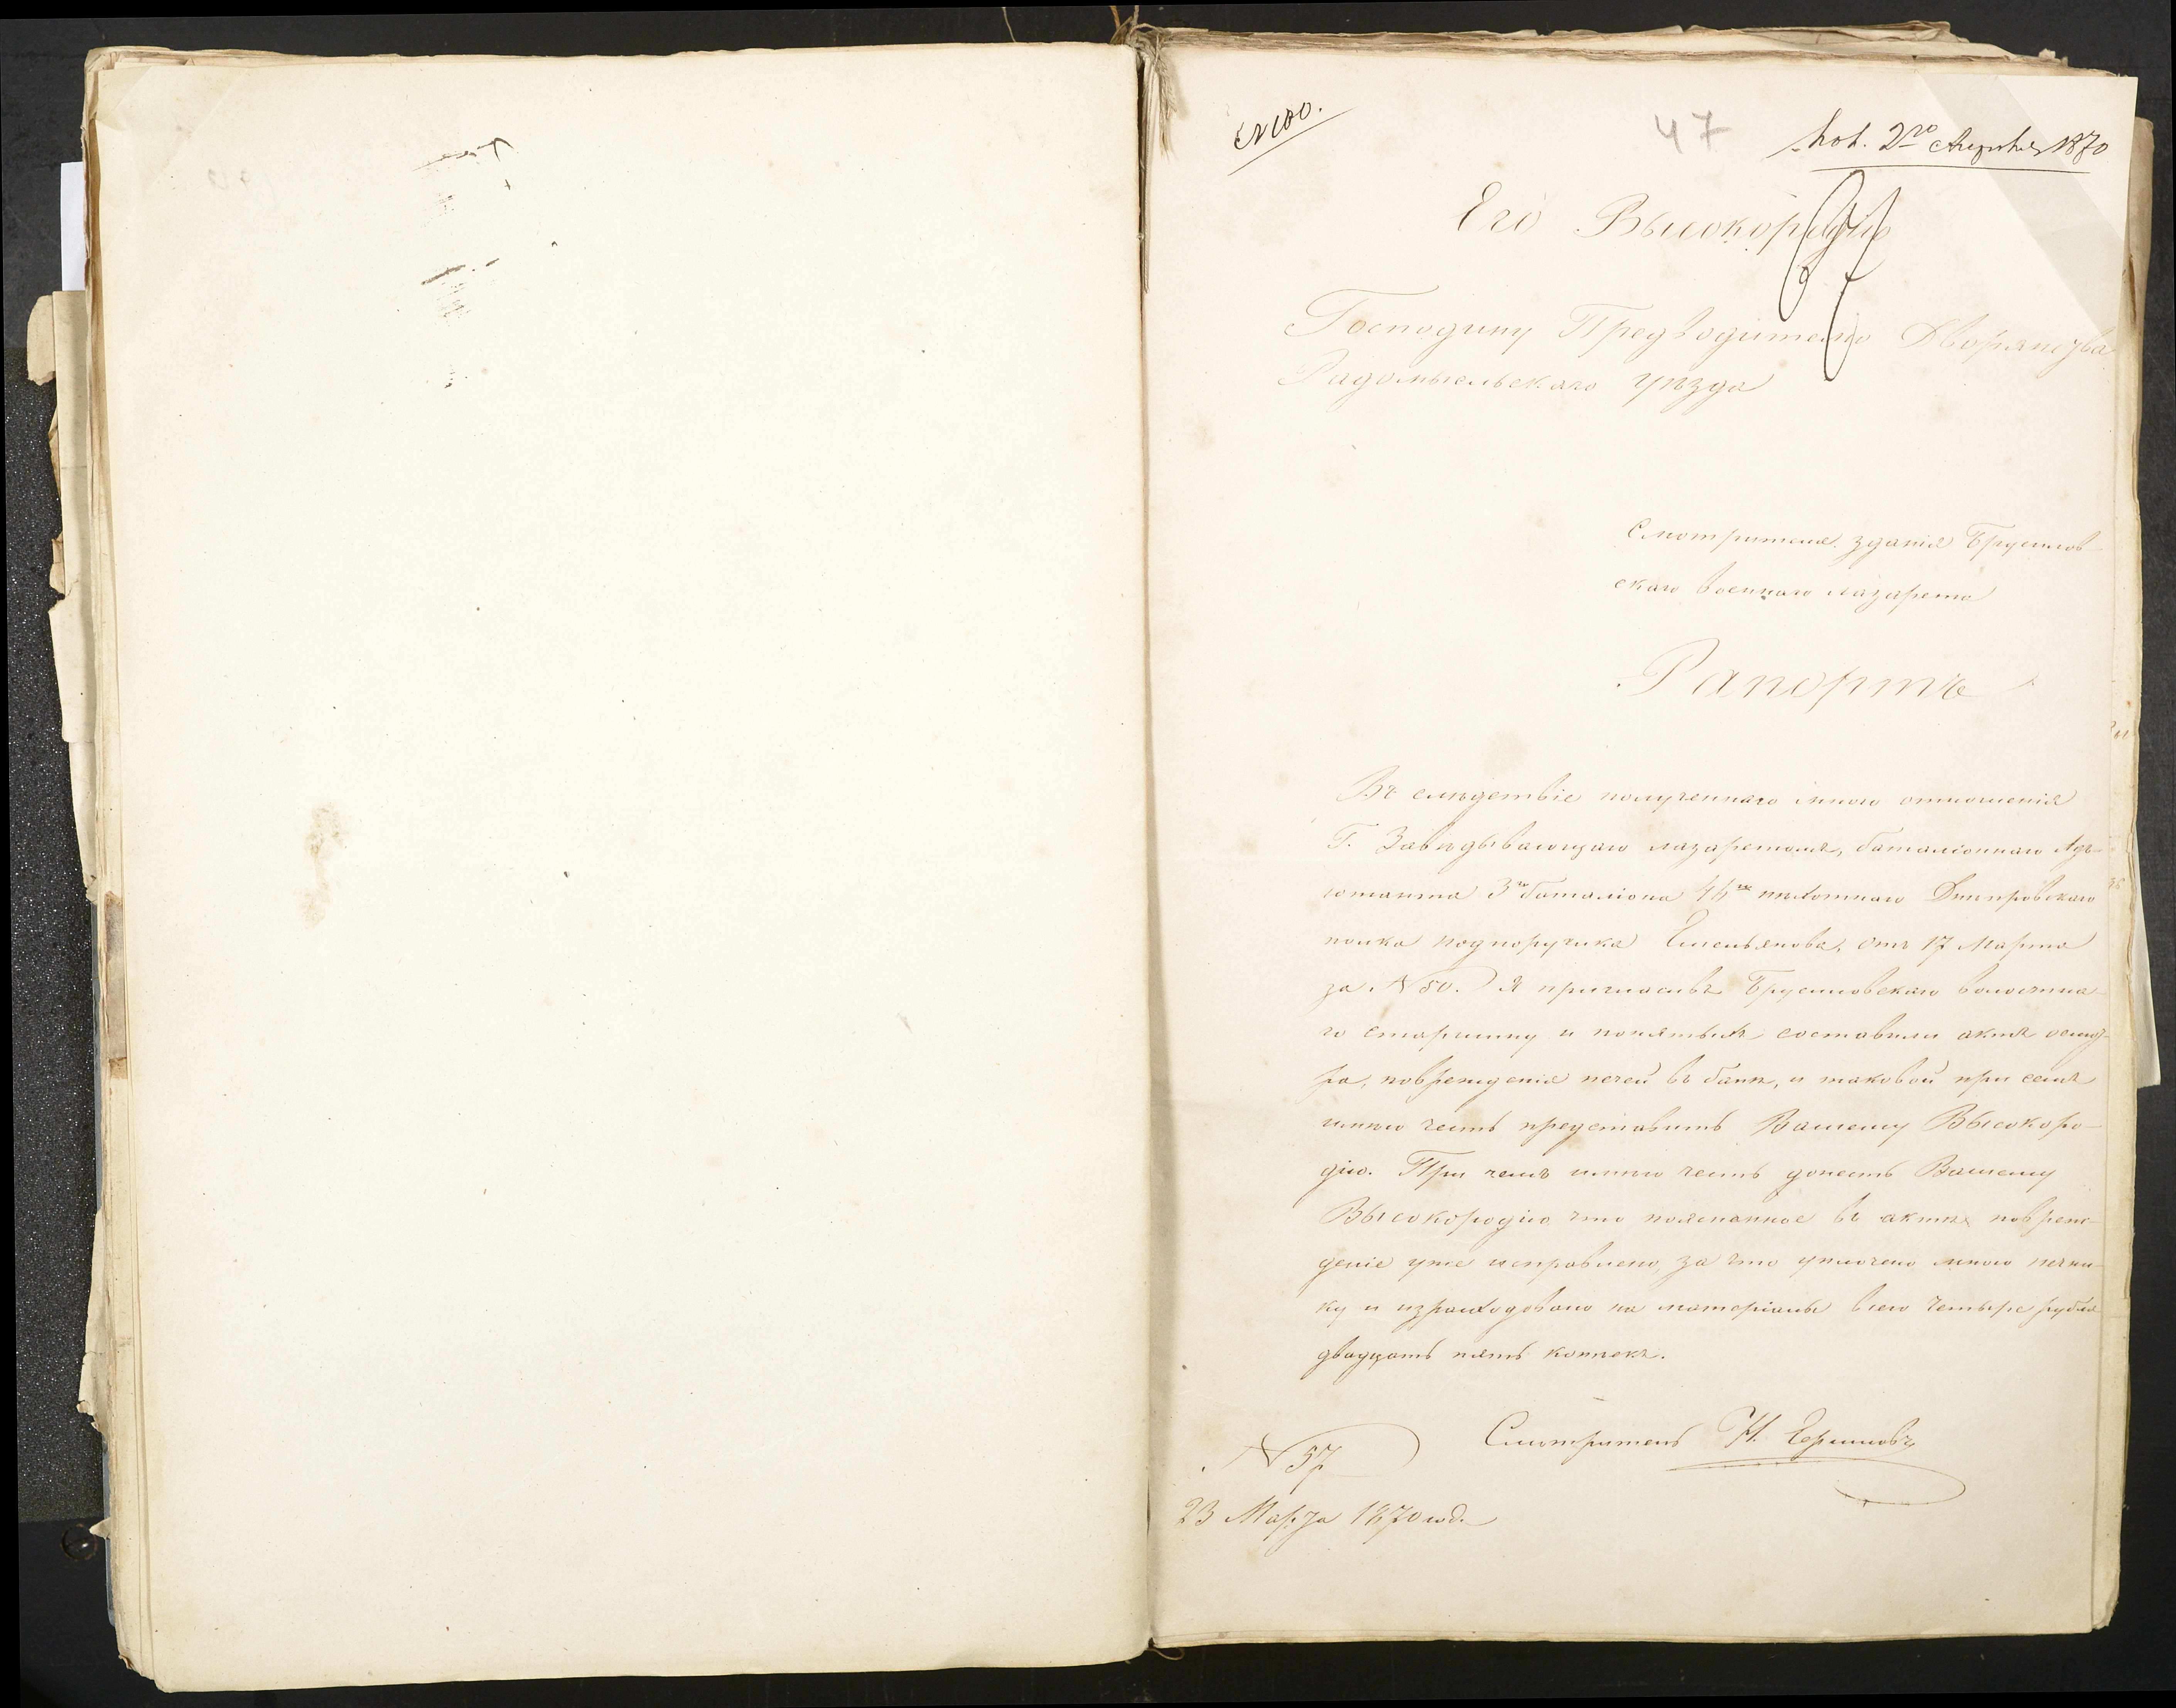 № 100.
47
Пол. 2го Апреля 1870
Его Высокородію
Господину Предводителю Дворянства
Радомысльскаго уѣзда
Смотрителя зданія Брусилов-
скаго военнаго лазарета
Рапортъ
Въ слѣдствіе полученнаго мною отношенія
Г. Завѣдывающаго лазаретомъ, баталіоннаго Адъ-
ютанта 3го баталіона 46го пѣхотнаго Днѣпровскаго
полка подпоручика Емельянова, отъ 17 Марта
за № 50. Я пригласивъ Брусиловскаго волостна-
го старшину и понятыхъ составили актъ осмот-
ра, поврежденія печей въ банѣ, и таковой при семъ
имѣю честь представить Вашему Высокоро-
дію. При чемъ имѣю честь донесть Вашему
Высокородію что поясненное въ актѣ повреж-
деніе уже исправлено, за что уплочено мною печни-
ку и израсходовано на матеріалы всего четыре рубля
двадцать пять копѣекъ.
Смотритель Н.
№ 57
23 Марта 1870 год.